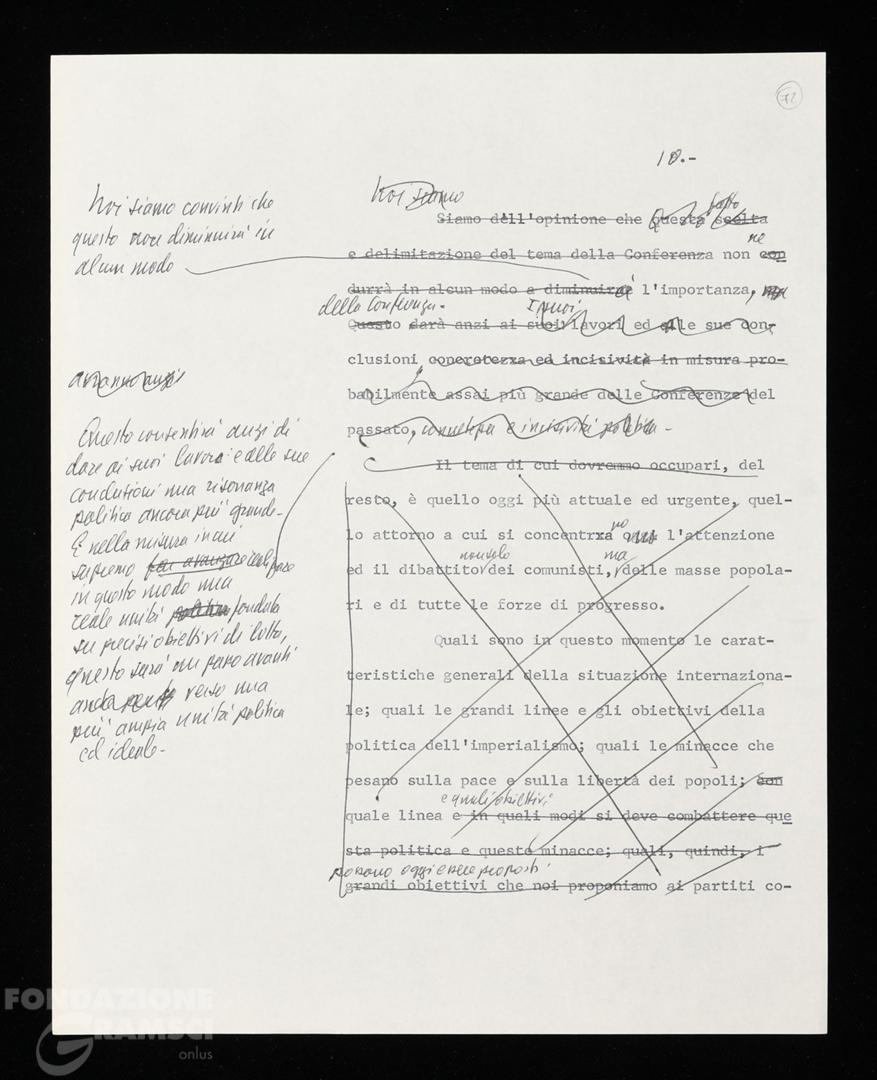 72
10.-
Noi siamo
Noi siamo convinti che
questo non diminuirà in
alcun modo
Siamo dell'opinione che questa scelta
fatto
e delimitazione del tema della Conferenza non con
ne
durrà in alcun modo a diminuire l'importanza,
della Conferenza. I suoi
Questo darà anzi ai suoi lavori ed alle sue con-
clusioni concretezza ed incisività in misura pro-
babilmente assai più grande delle Conferenze del
passato, concretezza e incisività politica -
avranno anzi
Questo consentirà anzi di
dare ai suoi lavori e alle sue
conclusioni una risonanza
politica ancora più grande.
E nella misura in cui
sapremo far avanzare
in questo modo una
reale unità politica fondata
su precisi obiettivi di lotta,
questo sarà un passo avanti
anche verso una
più ampia unità politica
ed ideale -
Il tema di cui dovremmo occupari, del
resto, è quello oggi più attuale ed urgente, quel-
lo attorno a cui si concentrxa l'attenzione
no
non solo ma
ed il dibattito dei comunisti, delle masse popola-
ri e di tutte le forze di progresso.
Quali sono in questo momento le carat-
teristiche generali della situazione internaziona-
le; quali le grandi linee e gli obiettivi della
politica dell'imperialismo; quali le minacce che
pesano sulla pace e sulla libertà dei popoli; con
e quali obiettivi
quale linea e in quali modi si deve combattere que
sta politica e queste minacce; quali, quindi, i
possono oggi essere proposti
grandi obiettivi che noi proponiamo ai partiti co-
FONDAZIONE
GRAMSCI
onlus